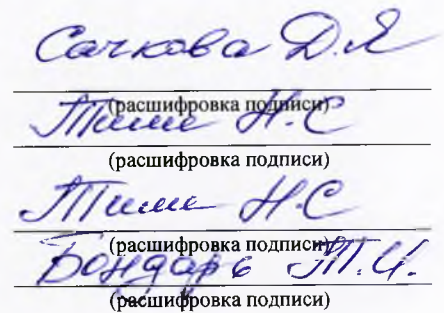 Сачкова Д.Я
(расшифровка подписи)
Тише Н.С
(расшифровка подписи)
Тише Н.С
(расшифровка подписи)
Бондарь Т.И.
(расшифровка подписи)